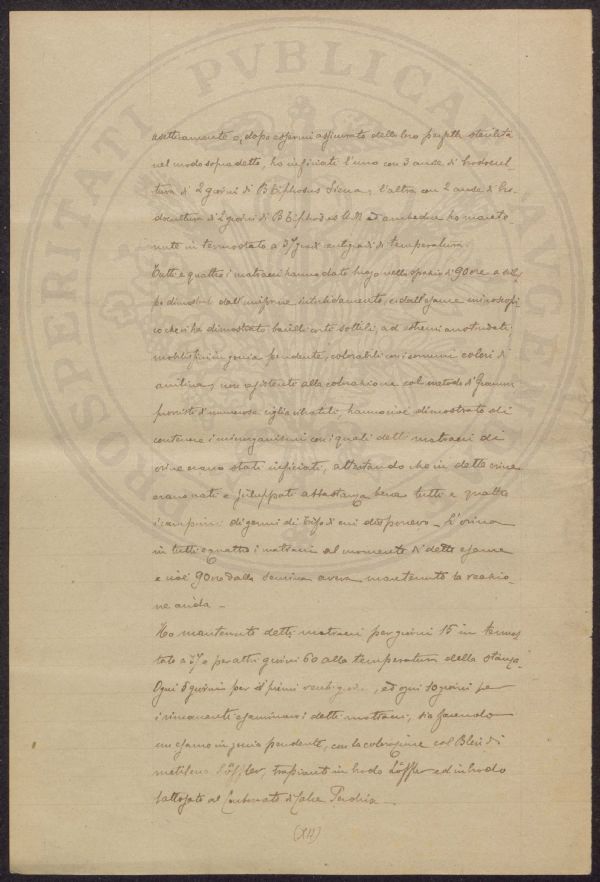 asetticamente e, dopo essermi assicurato della loro perfetta sterilità
nel modo sopradetto, ho inficiati l'uno con 3 anse di brodocul-
tura di 2 giorni di B Tiphosus Siena, l'altro con 2 anse di bro-
docultura di 2 giorni di B Tiphosus ed ambedue ho mante-
nuti in termostato a 37 gradi centigradi di temperatura.
Tutti e quattro i matracci hanno dato luogo nello spazio di 90 ore a svilup-
po dimostrato dall'uniforme intorbidamento, e dall'esame microscopi-
co che ci ha dimostrato bacilli corti sottili, ad estremi arrotondati,
mobilissimi in goccia pendente, colorabili con i comuni colori di
anilina, non resistenti alla colorazione col metodo di Gramm
provvisti di numerose ciglia vibratili, hanno cioè dimostrato di
contenere i microrganismi con i quali detti matracci di
orine erano stati inficiati, attestando che in dette orine
erano nati e sviluppati abbastanza bene tutti e quattro
i campioni di germi di tifo di cui disponevo – L'orina
in tutti e quattro i matracci al momento di detto esame
e cioè 90 ore dalla semina aveva mantenuto la reazio-
ne acida –
Ho mantenuto detti matracci per giorni 15 in termos
tato a 37 e per altri giorni 60 alla temperatura della stanza.
Ogni 5 giorni per i primi venti giorni, ed ogni 10 giorni per
i rimanenti esaminavo i detti matracci, sia facendo
un esame in goccia pendente, con la colorazione col Bleu di
metilene Löffler, trapianti in brodo Löffler ed in brodo
lattosato al Carbonato di Calce Perchia –
(XII)
PROSPERITATI PVBLICAE AVGENDAE